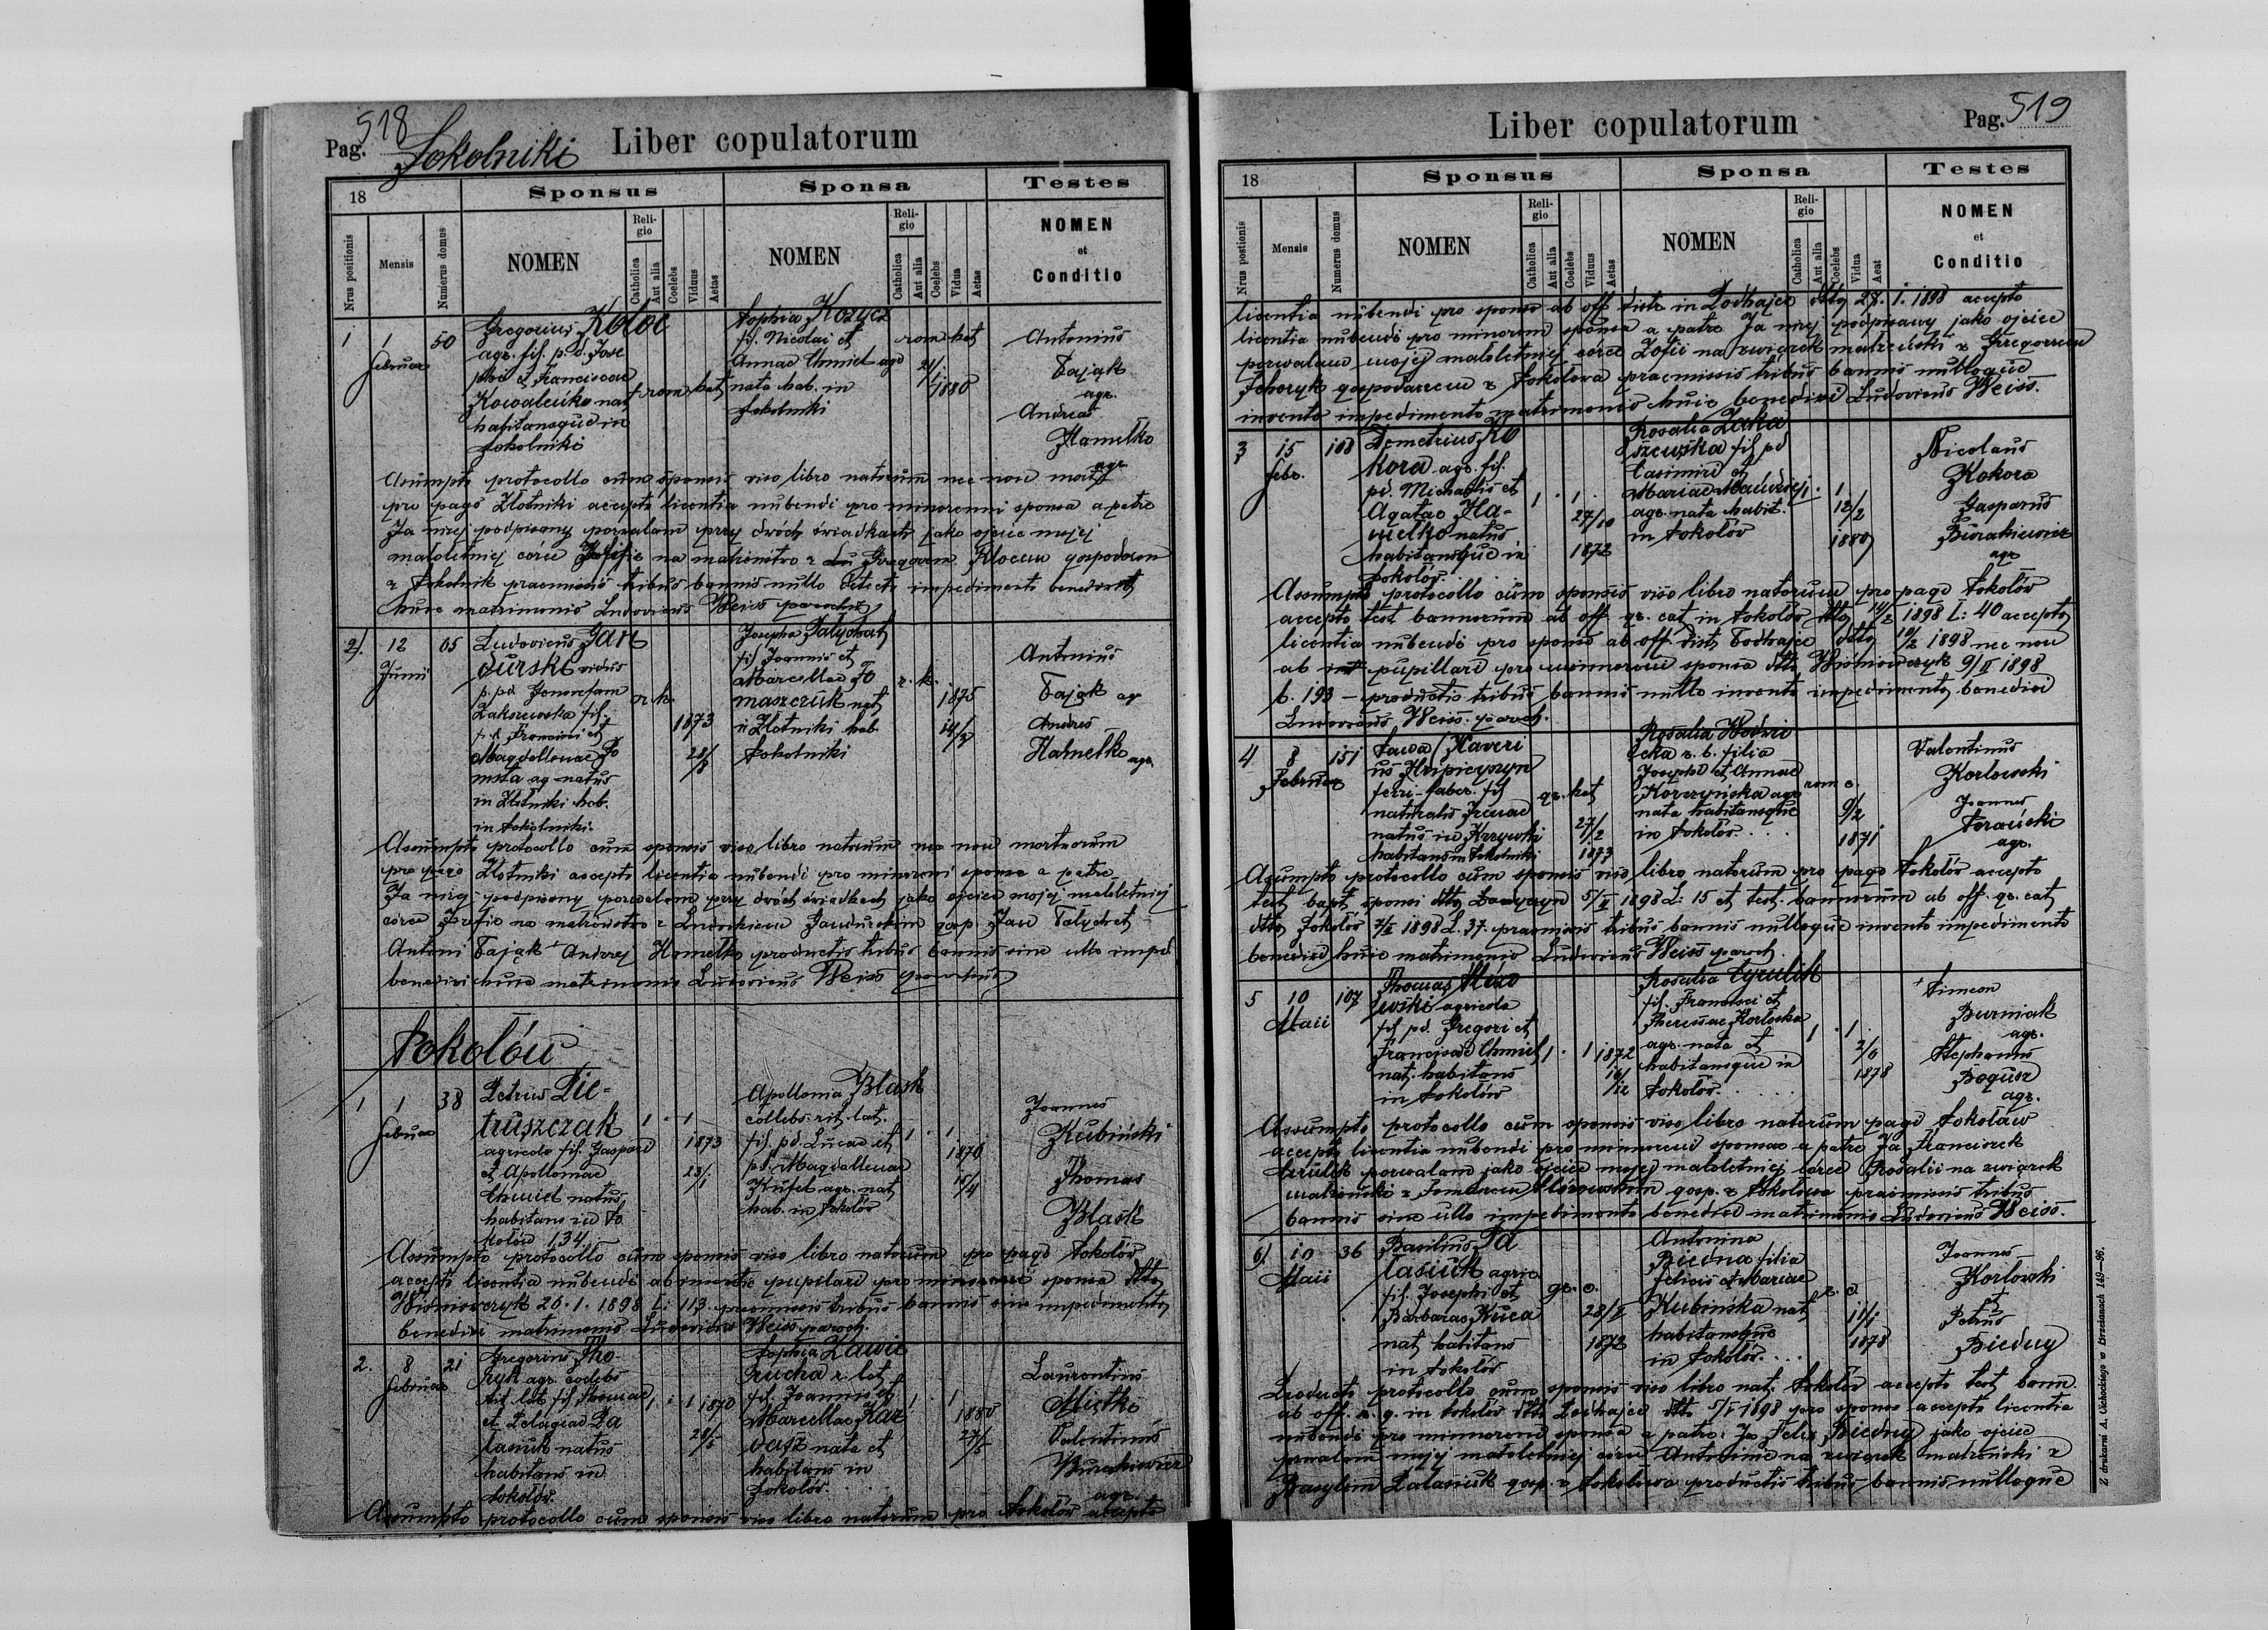 Pag. 518
Sokolniki
Liber copulatorum
18
Sponsus
Sponsa
Testes
Nrus positionis
Mensis
Numerus domus
NOMEN
Religio
Catholica
Aut alia
Coelebs
Viduus
Aetas
NOMEN
Religio
Catholica
Aut alia
Coelebs
Vidua
Aetas
NOMEN
et
Conditio
1
1
Februar
50
Gregorius Kloc
agr. fil. p. d. Jose
phi et Franciscae
Kowaleńko nat
habitansque in
Sokolniki
rom kat
Sophia Kozycz
fil. Nicolai et
Annae Chmiel agr
nata hab. in
Sokolniki
rom kat
1880
Antonius
Tająk
agr.
Andreas
Hamelko
agr
Assumpto protocollo cum sponsis viso libro natorum nec non mort
pro pago Złotniki accepta licentia nubendi pro minorenni sponsa a patre
Ja niżej podpisany pozwalam przy dwóch świadkach jako ojciec mojej
małoletniej córce Zofii na małżeństwo z Grzegorzem Klocem gospodarzem
z Sokolnik praemissis tribus bannis nullo detecto impedimento benedixi
huic matrimonio Ludovicus Weiss parochus
2).
12
Junii
65
Ludovicus Jan
durski viduus
p. pd. Genovefam
Zakszewska fil.
p. d. Francisci et
Magdallenae So
agr natus
in Złotniki hab.
in Sokolniki.
r. k.
1873
28/8
Josepha Talychat
fil Joannis et
Marcellae To
maszczuk nat
in Złotniki hab.
Sokolniki
r. k.
1875
Antonius
Tająk agr
Andreas
Hamelko agr.
Assumpto protocollo cum sponsis viso libro natorum nec non mortuorum
pro pago Złotniki accepta licentia nubendi pro minoreni sponsa a patre
Ja niżej podpisany pozwalam przy dwóch świadkach jako ojciec mojej małoletniej
córce Józefie na małżeństwo z Ludwikiem Jandurskim gosp. Jan Talychat
Antoni Tająk Andrzej Hamelko productis tribus bannis sine ullo imped
benedixi huic matrimonio Ludovicus Weiss parochus
Sokolów
1
1
Februar
38
Petrus Pie-
truszczak
agricola fil. Gaspari
et Apolloniae
Chmiel natus
habitans in So
kolów 134.
1
1
1873
23/1
Apollonia Błask
coelebs rit. lat.
fil. pd. Lucae et
pd. Magdallenae
Kufel agr. nat
hab. in Sokolów
1
1
1876
15/4
Joannes
Kubiński
Thomas
Błask
Assumpto protocollo cum sponsis viso libro natorum pro pago Sokolów
accepta licentia nubendi ab pupilari pro minorenni sponsa dtto
Wiśniowczyk 26. 1. 1898 L: 113. praemissis tribus bannis sine impedimento
benedixi matrimonio Ludovicus Weiss paroch.
2.
8
Februar
21
Gregorius Tho-
ryk agr. coelebs
rit. lat. fil. Thomae
et Pelagiae Pa
lasiuk natus
habitans in
Sokolów.
1
1
1870
28/5
Sophia Zawie
rucha r. lat
fil. Joannis et
Marcellae Kar
dasz nata et
habitans in
Sokolów.
1
1
1880
27/5
Laurentius
Miętki
Valentinus
Burakiewicz
agr.
Assumpto protocollo cum sponsis viso libro natorum pro Sokolów accepto
Liber copulatorum
Pag. 519
18
Sponsus
Sponsa
Testes
Nrus postionis
Mensis
Numerus domus
NOMEN
Religio
Catholica
Aut alia
Coelebs
Viduus
Aetas
NOMEN
Religio
Catholica
Aut alia
Coelebs
Vidua
Aeat
NOMEN
et
Conditio
licentia nubendi pro sponso ab off distr in Podhajce dtto 28. I. 1898 accepto
licentia nubendi pro minorem sponsa a patre Ja niżej podpisany jako ojciec
pozwalam mojej małoletniej córce Zofii na związek małżeński z Grzegorzem
gospodarzem z Sokolowa praemissis tribus bannis nulloque
invento impedimento matrimonio huic benedixi Ludovicus Weiss.
3
15
Febr.
108
Demetrius Ko
kora agr. fil.
pd. Michaelis et
Agatae Ha-
melko natus
habitansque in
Sokolów.
1
1
27/10
1872
Rosalia Zaka
szewska fil pd
Casimiri et
Mariae
agr. nata habit.
in Sokolów
1
1
12/2
1880
Nicolaus
Kokora
Gasparus
Burakiewicz
agr
Assumpto protocollo cum sponsis viso libro natorum pro pago Sokolów
accepto test bannorum ab off gr. cat in Sokolów dtto 14/2 1898 L: 40 accepto
licentia nubendi pro sponso ab off. distr Podhajce dtto 10/2 1898 nec non
ab pupillari pro minorem sponsa dtto Wiśniowczyk 9/II 1898
L. 193 – productis tribus bannis nullo invento impedimento benedixi
Ludovicus Weiss. paroch.
4
8
Februar
151
Sawa / Xaveri
us Hripieyszyn
ferri-faber. fil
naturalis Irenae
natus in Krzywki
habitans in Sokolniki
gr. kat
27/2
1873
Rosalia Wodzi
cka r. l. filia
Josephi et Annae
Korczyńska agr
nata habitansque
in Sokolów
rom c.
9/2
1871
Valentinus
Korlowski
Joannes
agr.
Assumpto protocollo cum sponsis viso libro natorum pro pago Sokolów accepto
test bapt. sponsi dtto 5/II 1898 L: 15 et test. bannorum ab off. gr. cat
dtto Sokolów 7/II 1898 L. 37. praemissis tribus bannis nulloque invento impedimento
benedixi huic matrimonio Ludovicus Weiss paroch.
5
10
Maii
107
Thomas
agricola
fil pd. Gregori et
Franciscae Chmiel
nat. habitans
in Sokolów
1
1
1872
Rosalia Cyrulik
fil. Francisci et
Theressae Korloska
agr. nata et
habitansque in
Sokolów.
1
1
2/6
1878
Simeon
Burniak
agr.
Stephanus
Bogusz
agr.
Assumpto protocollo cum sponsis viso libro natorum pago Sokolów
accepta licentia nubendi pro minorem sponsae a patre Ja Franciszek
Cerulik pozwalam jako ojciec mojej małoletniej córce Rosalii na związek
małżeński z Tomaszem gosp. z Sokolowa praemissis tribus
bannis sine ullo impedimento benedixi matrimonio Ludovicus Weiss.
6).
10
Maii
36
Basilius Pa
lasiuk agric
fil. Josephi et
Barbaras Kuca
nat habitans
in Sokolów
gr. c.
28/II
1872
Antonina
Biedna filia
Felicis et Mariae
Kubińska nat
habitansque
in Sokolów.
r. c
11/1
1878
Joannes
Korlowski
et
Petrus
Biedny
Producto protocollo cum sponsis viso libro nat. Sokolów accepto test bann.
ab off. r. g. in Sokolów dtto Podhajce dtto 5/V 1898 pro sponso accepto licentia
nubendi pro minorem sponsa a patre: Ja Felix Biedny jako ojciec
pozwalam mojej małoletniej córce Antoninie na związek małżeński z
Bazylim Palasiuk gosp. z Sokolowa productis tribus bannis nulloque
Z drukarni A. Cichockiego w Brzeżanach 149—96.